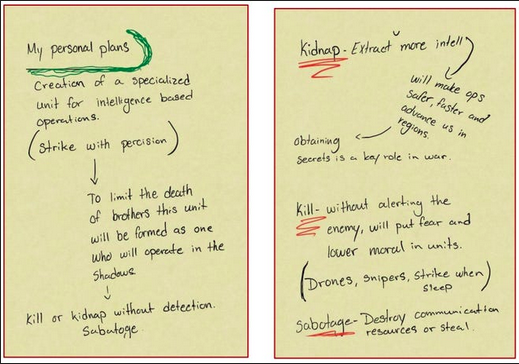 My personal plans
Creation of a specialized
unit for intelligence based
operations.
(Strike with percision)
To limit the death
of brothers this unit
will be formed as one
who will operate in the
shadows
Kill or kidnap without detection.
Sabotage.
Kidnap - Extract more intell
will make ops
safer, faster and
advance us in
regions.
obtaining
secrets is a key role in war.
Kill - without alerting the
enemy, will put fear and
lower moral in units.
(Drones, snipers, strike when
sleep)
Sabotage - Destroy communication
resources or steal.